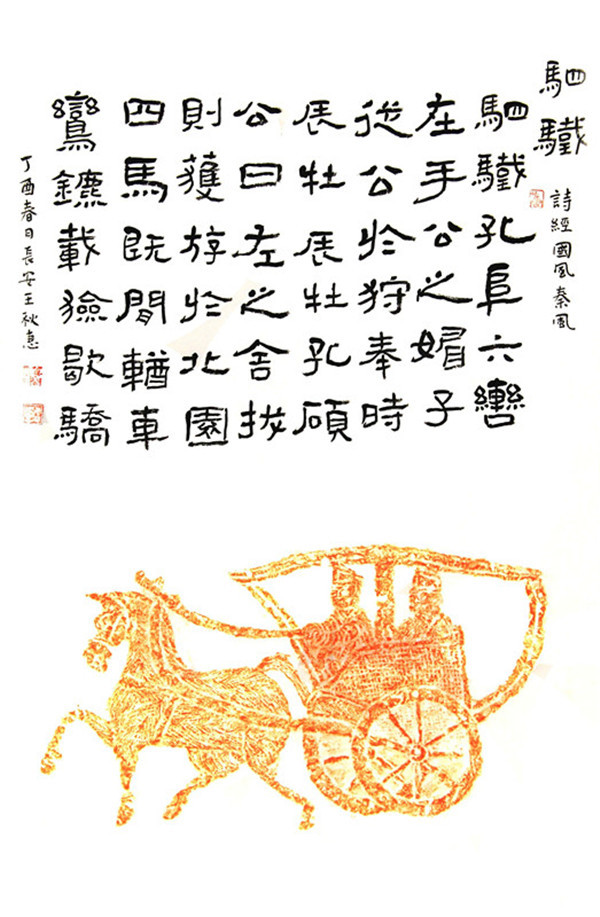 駟驖
詩經國風秦風
駟驖孔阜六轡
在手公之媚子
從公於狩奉時
辰牡辰牡孔碩
公曰左之舍拔
則獲斿於北園
四馬既閒輶車
鸞鑣載獫歇驕
丁酉春日長安王秋惠